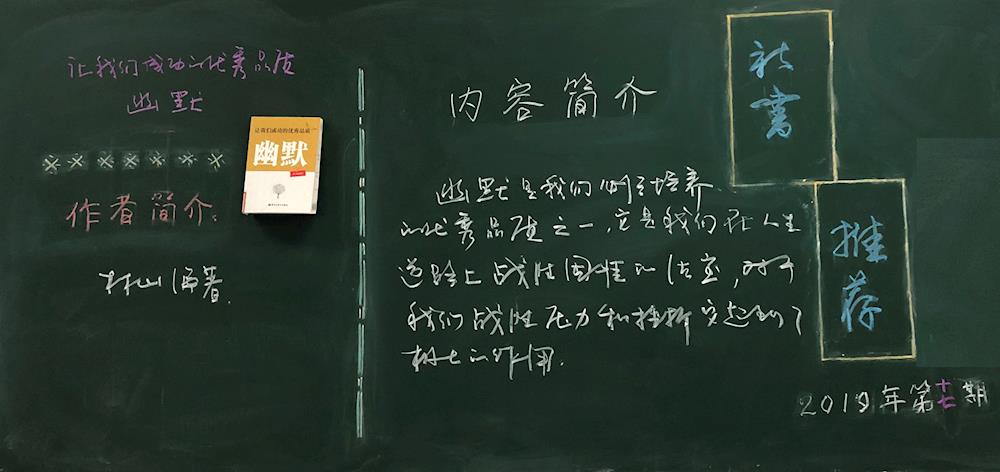 让我们成功的优秀品质
幽默
作者简介:
林山编著.
让我们成功的优秀品质
幽默
内容简介
幽默是我们所需培养
的优秀品质之一,它是我们在人生
道路上战胜困难的法宝,对于
我们战胜压力和挫折突起到了
极大的作用.
新书
推荐
2019年第十七期